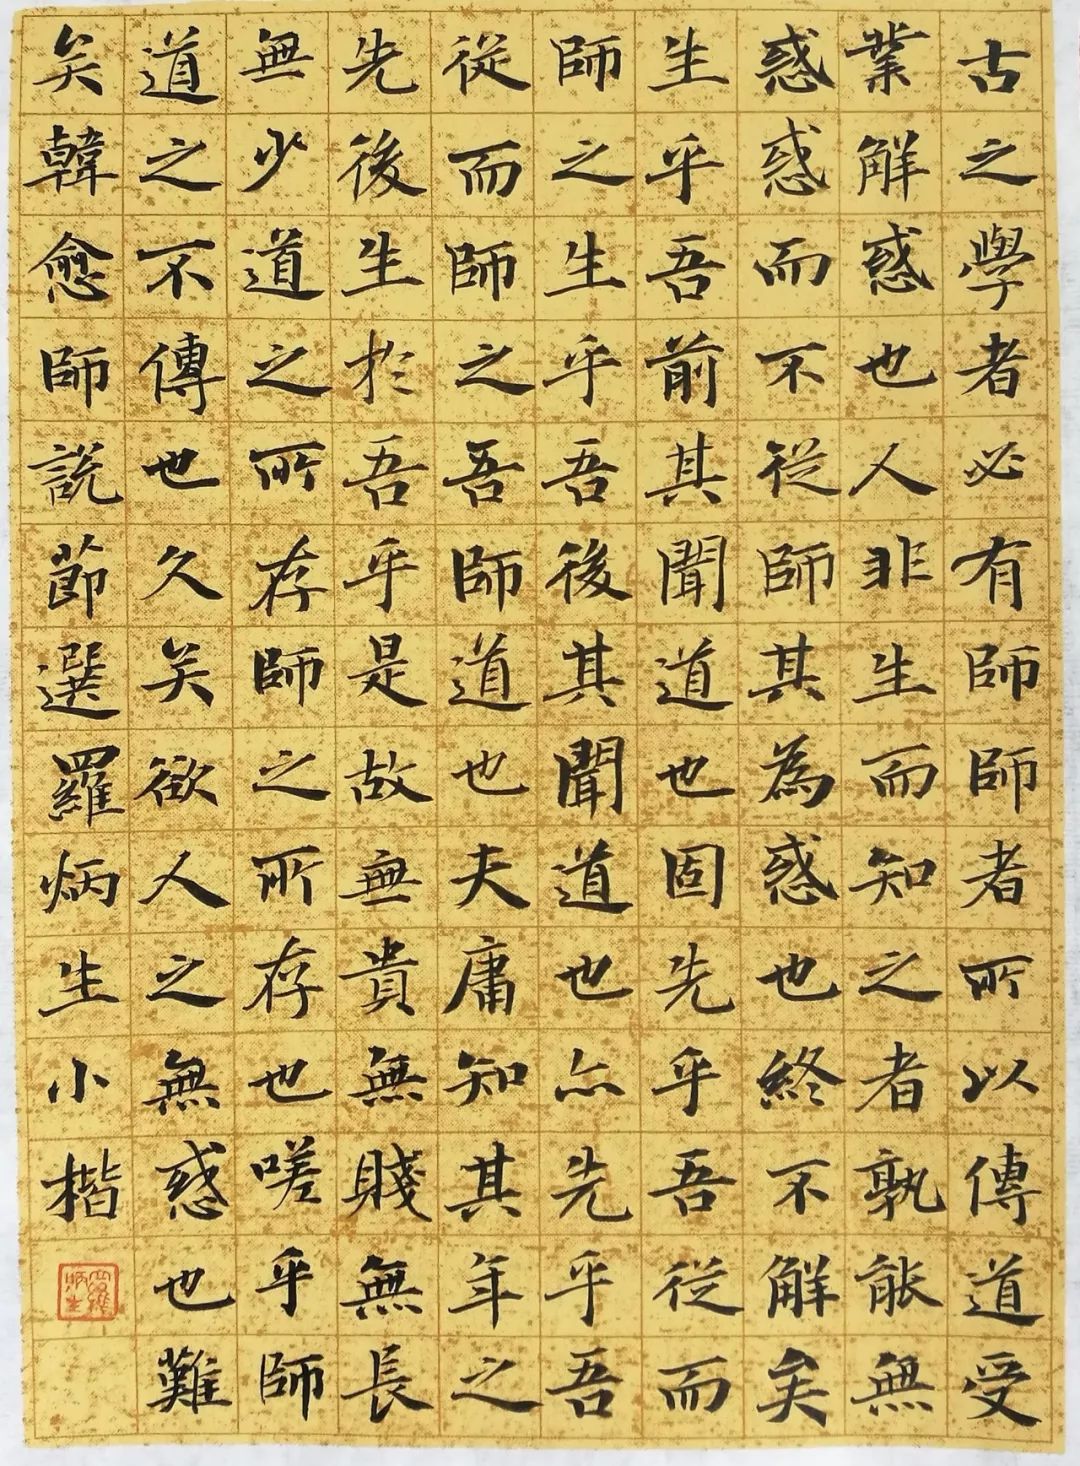 古之學者必有師師者所以傳道受
業解惑也人非生而知之者孰能無
惑惑而不從師其為惑也終不解矣
生乎吾前其聞道也固先乎吾從而
師之生乎吾後其聞道也亦先乎吾
從而師之吾師道也夫庸知其年之
先後生於吾乎是故無貴無賤無長
無少道之所存師之所存也嗟乎師
道之不傳也久矣欲人之無惑也難
矣韓愈師說節選羅炳生小楷
羅炳生